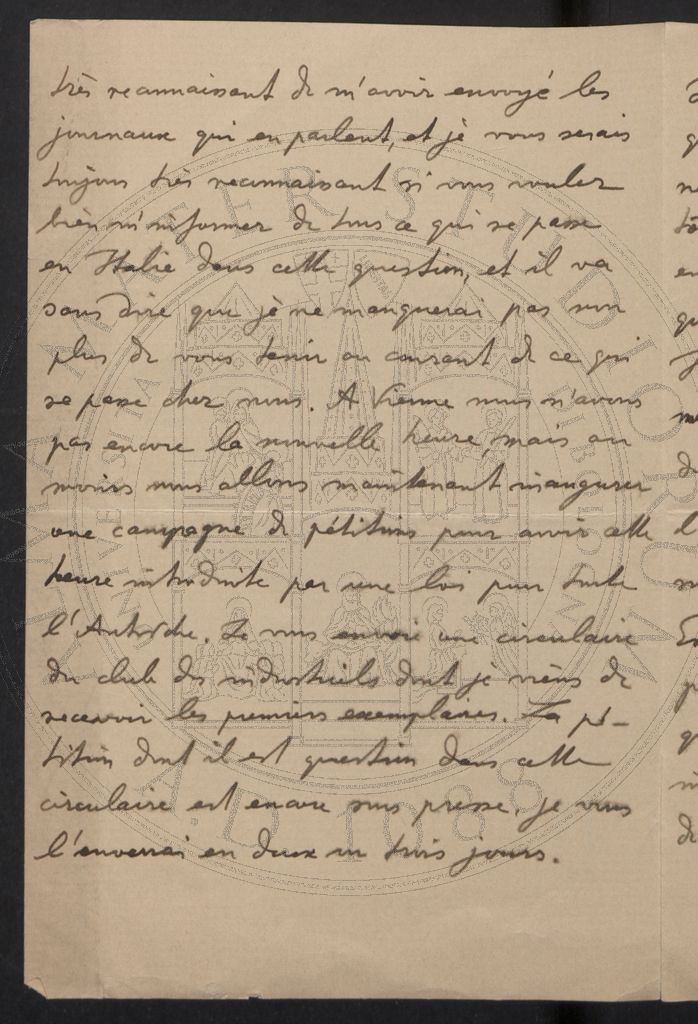 très reconnaissant de m'avoir envoyé les
journaux qui en parlent, et je vous serais
toujours très reconnaissant si vous voulez
bien m'informer de tous ce qui se passe
en Italie dans cette question, et il va
sans dire que je ne manquerai pas non
plus de vous tenir au courant de ce qui
se passe chez nous. A Vienne nous n'avons
pas encore la nouvelle heure, mais au
moins nous allons maintenant inaugurer
une campagne de pétitions pour avoir cette
heure introduite par une loi pour toute
l'Autriche. Je vous envoie une circulaire
du club des industriels dont je viens de
recevoir les premiers exemplaires. La pé-
tition dont il est question dans cette
circulaire est encore sous presse, je vous
l'enverrai en deux ou trois jours.
ALMA MATER STUDIORUM
A.D. 1088